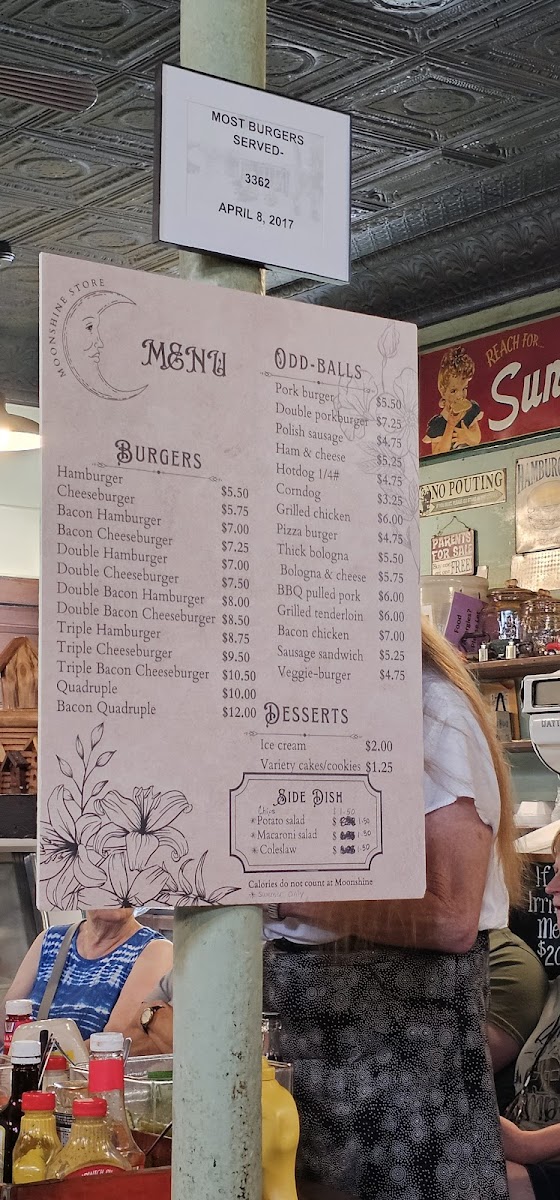 MOST BURGERS
SERVED-
3362
APRIL 8, 2017
MOONSHINE STORE
MENU
BURGERS
Hamburger $5.50
Cheeseburger $5.75
Bacon Hamburger $7.00
Bacon Cheeseburger $7.25
Double Hamburger $7.00
Double Cheeseburger $7.50
Double Bacon Hamburger $8.00
Double Bacon Cheeseburger $8.50
Triple Hamburger $8.75
Triple Cheeseburger $9.50
Triple Bacon Cheeseburger $10.50
Quadruple $10.00
Bacon Quadruple $12.00
ODD-BALLS
Pork burger $5.50
Double porkburger $7.25
Polish sausage $4.75
Ham & cheese $5.25
Hotdog 1/4# $4.75
Corndog $3.25
Grilled chicken $6.00
Pizza burger $4.75
Thick bologna $5.50
Bologna & cheese $5.75
BBQ pulled pork $6.00
Grilled tenderloin $6.00
Bacon chicken $7.00
Sausage sandwich $5.25
Veggie-burger $4.75
DESSERTS
Ice cream $2.00
Variety cakes/cookies $1.25
SIDE DISH
Chips $1.50
*Potato salad $ 1.50
*Macaroni salad $ 1.50
*Coleslaw $ 1.50
Calories do not count at Moonshine
REACH FOR...
Sun
NO POUTING
HAMBURG
PARENTS
FOR SALE
FREE!
Food
If
Irri
Me
$20